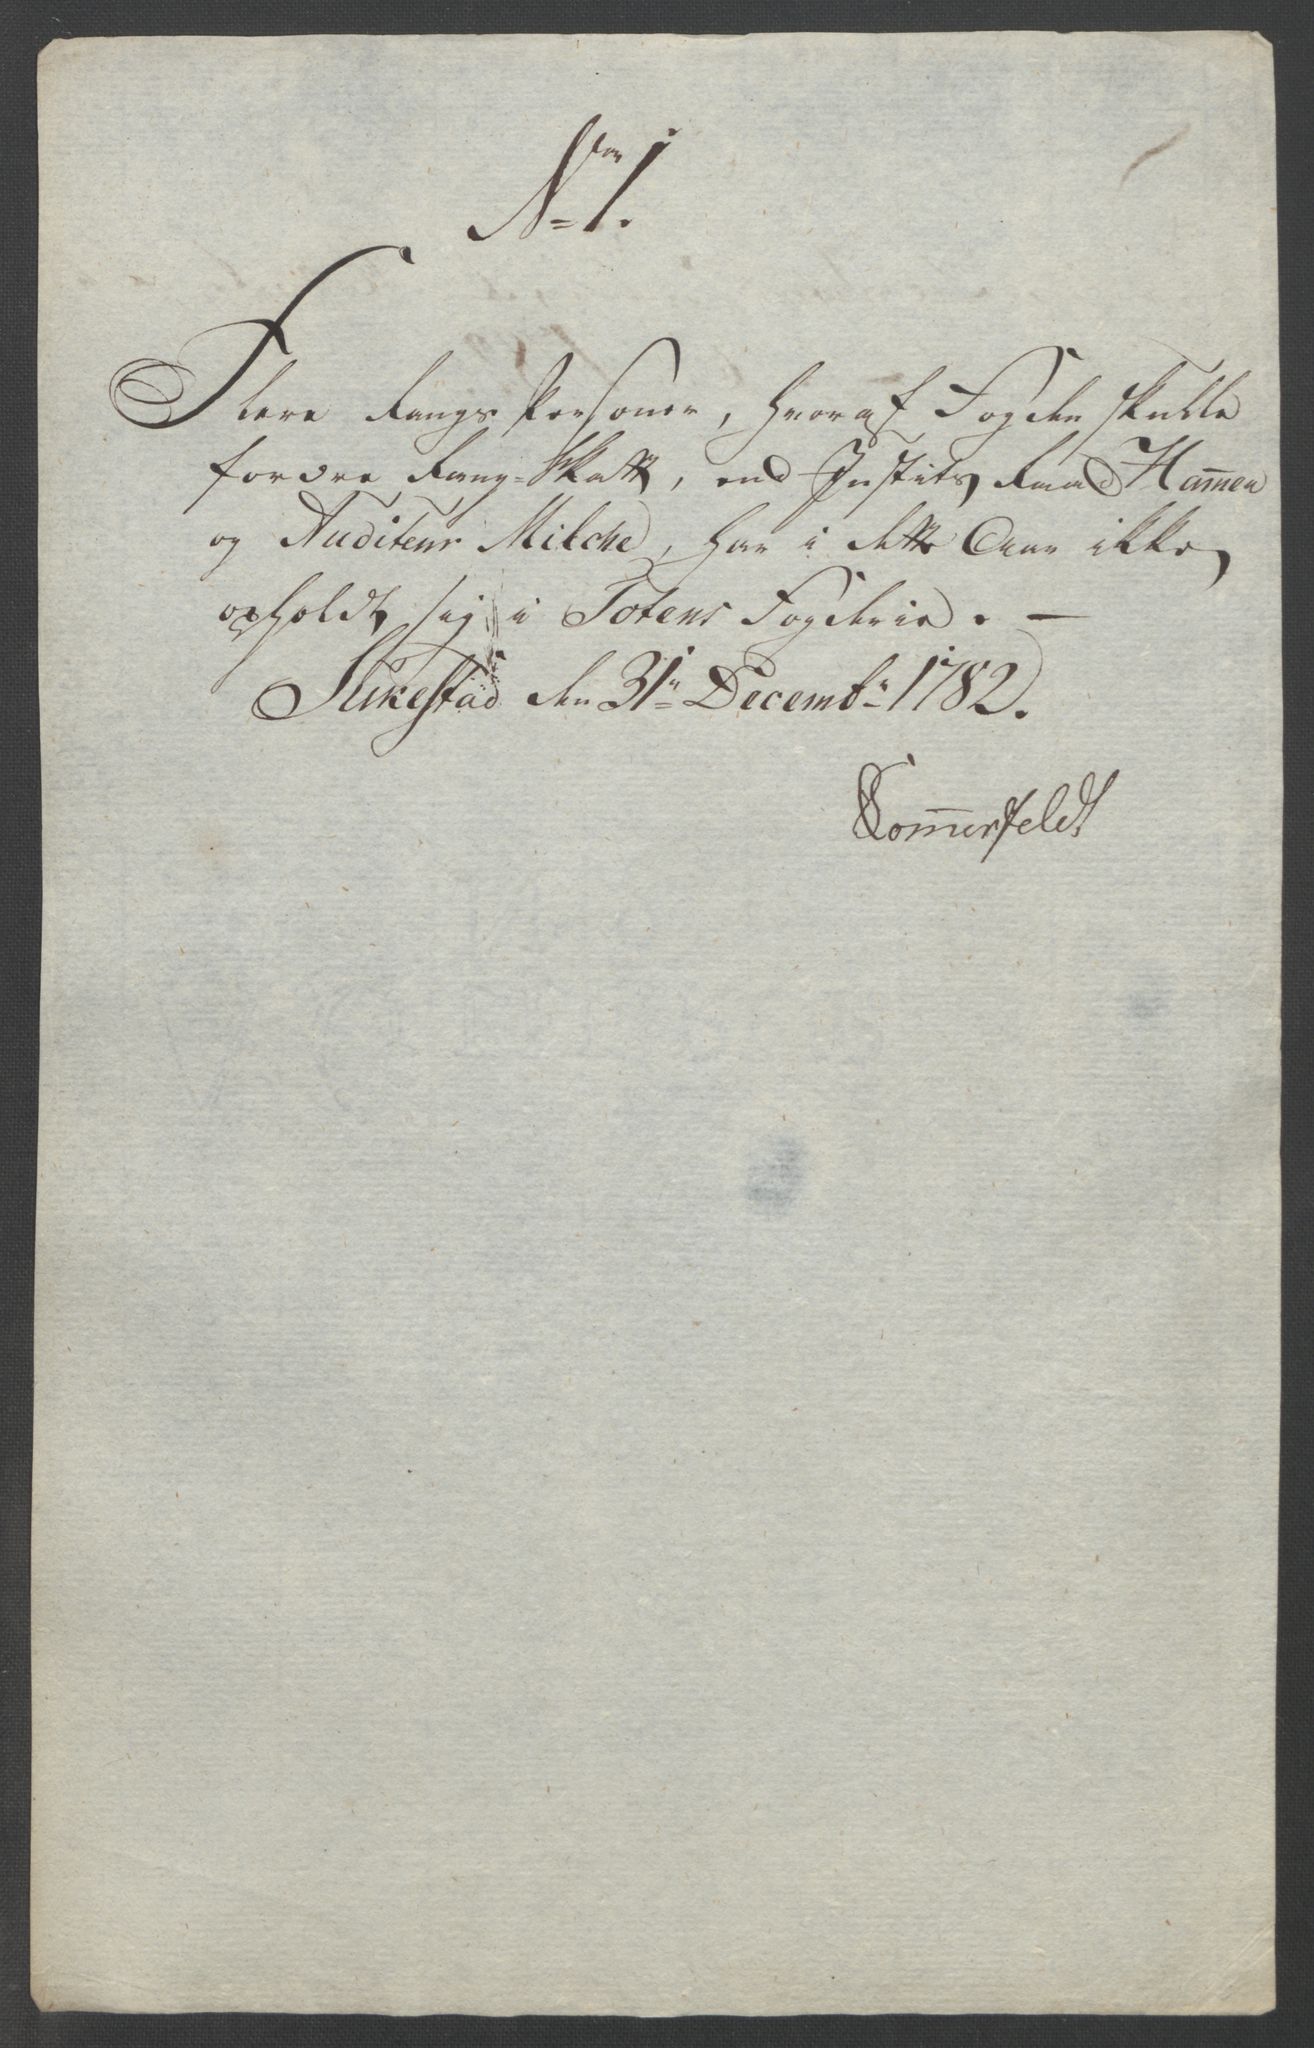 No 1.
Flere Rangs Personer, hvoraf Fogden skulde
fordre Rang-Skatt, end Justits Raad Ham̅er
og Auditeur Milche, har i dette Aar ikke
opholdt sig i Totens Fogderie. —
Sukestad den 31te Decembr 1782.
Som̅erfeldt